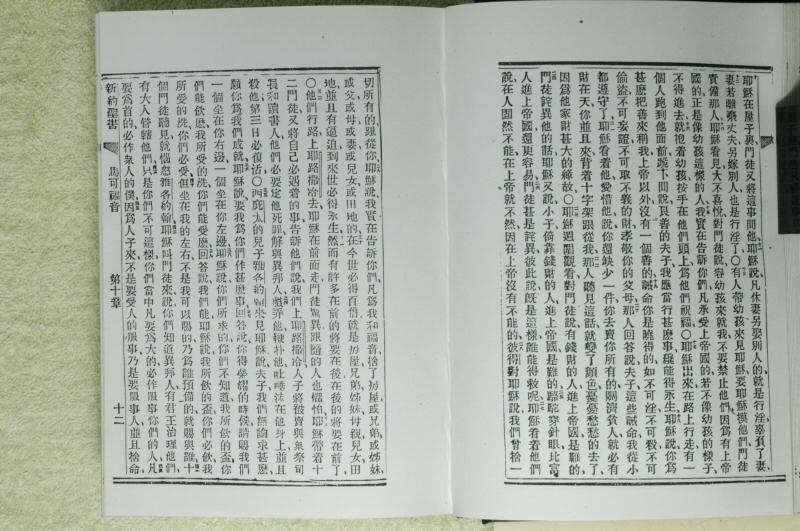 耶穌在屋子裏門徒又將這事問他耶穌說凡休妻另娶別人的就是行淫辜負了妻
妻若離棄丈夫另嫁別人也是行淫了○有人帶幼孩來見耶穌要耶穌摸他們門徒
責備那人耶穌看見大不喜悅對門徒說容幼孩來就我不要禁止他們因爲有上帝
國的正是像幼孩這樣的人我實在告訴你們凡承受上帝國的若不像幼孩的樣子
不得進去就抱着幼孩按手在他們頭上爲他們祝福○耶穌出來在路上行走有一
個人跑到他面前跪下問說良善的夫子我應當行甚麽事纔能得永生耶穌說你爲
甚麽把善來稱我上帝以外沒有一個善的誡命你是曉得的如不可淫不可殺不可
偷盜不可妄證不可取不義的財孝敬你的父母那人回答說夫子這些誡命我從小
都遵守了耶穌看着他愛惜他說你還缺少一件你去賣你所有的賙濟貧人就必有
財在天你並且來背着十字架跟從我那人聽見這話就變了顏色憂憂愁愁的去了
因爲他家財甚大的緣故○耶穌週圍觀看對門徒說有錢財的人進上帝國是難的
門徒詫異他的話耶穌又說小子倚靠錢財的人進上帝國是難的駱駝穿針眼比富
人進上帝國還更容易門徒甚是詫異彼此說旣是這樣誰能得救呢耶穌看着他們
說在人固然不能在上帝就不然因在上帝沒有不能的彼得對耶穌說我們曾捨一
切所有的跟從你耶穌說我實在告訴你們凡爲我和福音捨了房屋或兄弟或姊妹
或父或母或妻或兒女或田地的在今世必得百倍就是房屋兄弟姊妹母親兒女田
地並且有逼迫到來世必得永生然而有許多在前的將要在後在後的將要在前了
○他們行路上耶路撒冷去耶穌在前面走門徒驚異跟隨的人也懼怕耶穌帶着十
二門徒又將自己必遇着的事告訴他們說我們上耶路撒冷人子將被賣與衆祭司
長和讀書人他們必要定他死罪解與異邦人戲弄他鞭扑他吐唾沫在他身上並且
殺他第三日必復活○西庇太的兒子雅各約翰來見耶穌說夫子我們無論求甚麽
願你爲我們成就耶穌說要我爲你們作甚麽事回答說你得榮耀的時候請賜我們
一個坐在你右邊一個坐在你左邊耶穌說你們所求的你們不知道我所飲的盃你
們能飲麽我所受的洗你們能受麽回答說我們能耶穌說我所飲的盃你們必飲我
所受的洗你們必受但坐在我的左右不是我可以賜的乃爲誰預備的就賜與誰十
個門徒聽見就惱怒雅各約翰耶穌叫門徒來說你們知道異邦人有君王治理他們
有大人管轄他們只是你們不可這樣你們當中凡要爲大的必作服事你們的人凡
要爲首的必作衆人的僕因爲人子來不是要受人的服事乃是要服事人並且捨命
新約聖書 馬可福音 第十章 十二